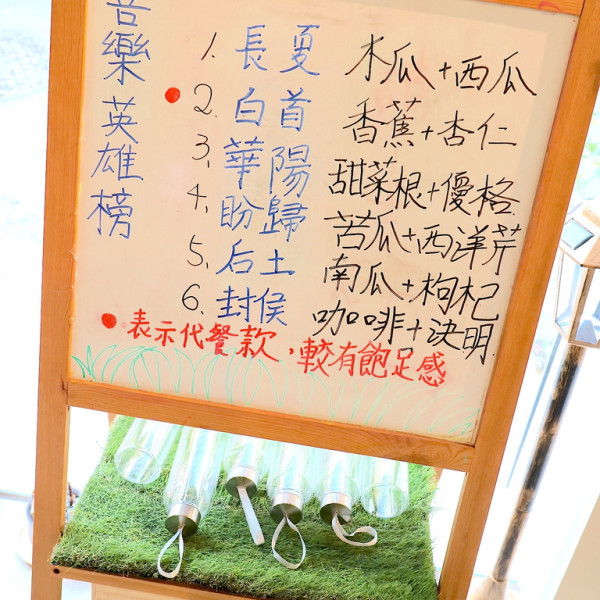 音樂英雄榜
1. 長夏 木瓜+西瓜
2. 白首 香蕉+杏仁
3. 華陽 甜菜根+優格
4. 盼歸 苦瓜+西洋芹
5. 后土 南瓜+枸杞
6. 封侯 咖啡+決明
表示代餐款，較有飽足感